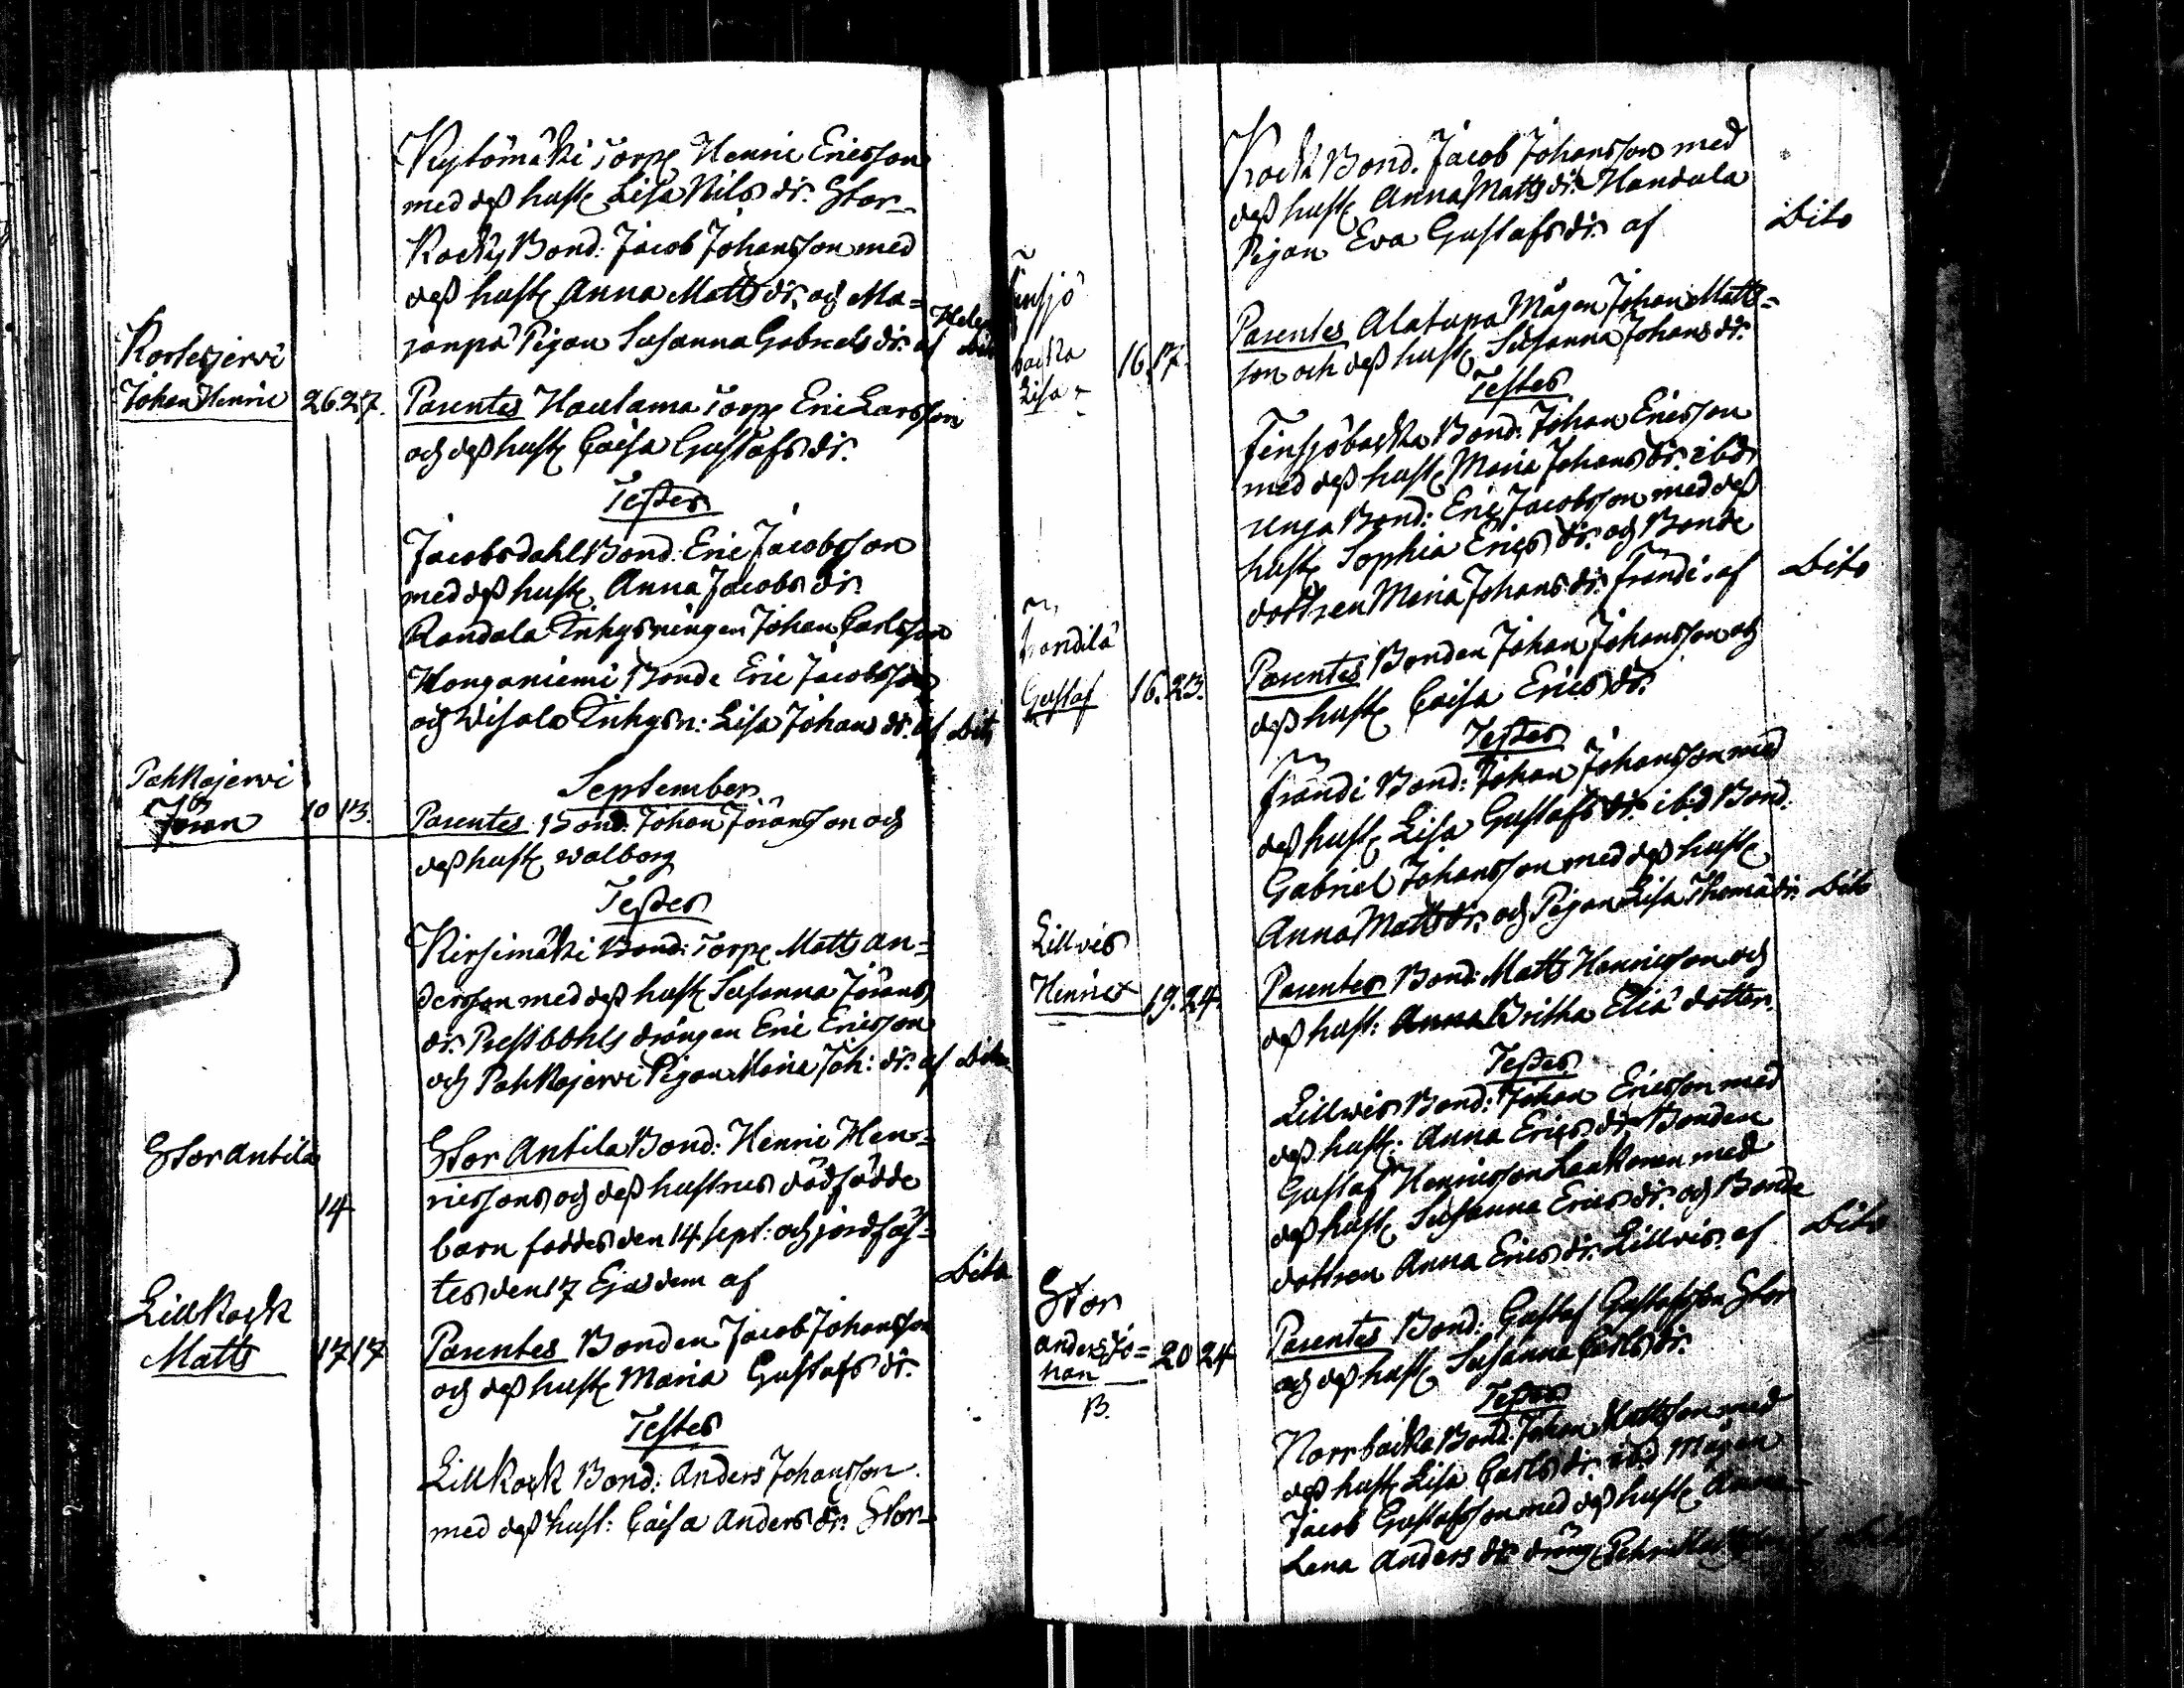 Kytömäki Torp. Henric Ericsson
med dess hust. Lisa Nils dr. Stor-
Kocks Bond: Jacob Johansson med
dess hust. Anna Matts dr. och Ma-
janpä Pigan Susanna Gabriels dr. af Dito
Kortesjervi
Johan Henric 26. 27. Parentes Haulama Torp. Eric Larsson
och dess hust. Caisa Gustafs dr.
Testes
Jacobsdahl Bond: Eric Jacobsson
med dess hust. Anna Jacobs dr.
Randala Inhysningen Johan Carlsson
Honganiemi Bonde Eric Jacobsson
och Wisala Inhysn: Lisa Johans dr. af Dito
September
Pahkajervi
Jöran 10 13. Parentes Bond: Johan Jöransson och
dess hust. Walborg
Testes
Kirsimäki Bond: Torp. Matts An-
dersson med dess hust. Susanna Jörans
dr. Drängen Eric Ericsson
och Pahkajervi Pigan Maria Joh: dr. af Dito
Stor Antila
14 Stor Antila Bond: Henric Hen-
ricssons och dess hustrus dödfödde
barn föddes den 14 Sept: och jordfäs-
tes den 17 Ejusdem af Dito
Lillkock
Matts 17 17 Parentes Bonden Jacob Johansson
och dess hust. Maria Gustafs dr.
Testes
Lillkock Bond: Anders Johansson
med dess hust: Caisa Anders dr. Stor-
Kock Bond. Jacob Johansson med
dess hust. Anna Matts dr. Handala
Pigan Eva Gustafs dr. af Dito
Finsjö
backa
Lisa 16. 17. Parentes Alatupa Mågen Johan Matts-
son och dess hust. Susanna Johans dr.
Testes
Finsjöbacka Bond: Johan Ericsson
med dess hust. Maria Johans dr. ibd
unga Bond: Eric Jacobsson med dess
hust. Sophia Erics dr. och Bonde
dottren Maria Johans dr. Frändi. af Dito
Gustaf 16. 23. Parentes Bonden Johan Johansson och
dess hust. Caisa Erics dr.
Testes
Frändi Bond: Johan Johansson med
dess hust. Lisa Gustafs dr. ibd Bond.
Gabriel Johansson med dess hust.
Anna Matts dr. och Pigan Lisa Thomæ dr. Dito
Lillvis
Henric 19. 24. Parentes Bond: Matts Henricsson och
dess hust: Anna Britha Eliæ dotter.
Testes
Lillvis Bond: Johan Ericsson med
dess hust: Anna Erics dr. Bonden
Gustaf Henricsson Laukonen med
dess hust. Susanna Erics dr. och Bonde
dottren Anna Erics dr. Lillvis. af Dito
Stor
Anders Jo-
han 20 24 Parentes Bond: Gustaf Gustafsson Stor
och dess hust. Susanna Carls dr.
B.
Testes
Norrbacka Bond: Johan Mattsson med
dess hust. Lisa Carls dr. ibd Mågen
Jacob Gustafsson med dess hust. Anna
Lena Anders dr. dräng.